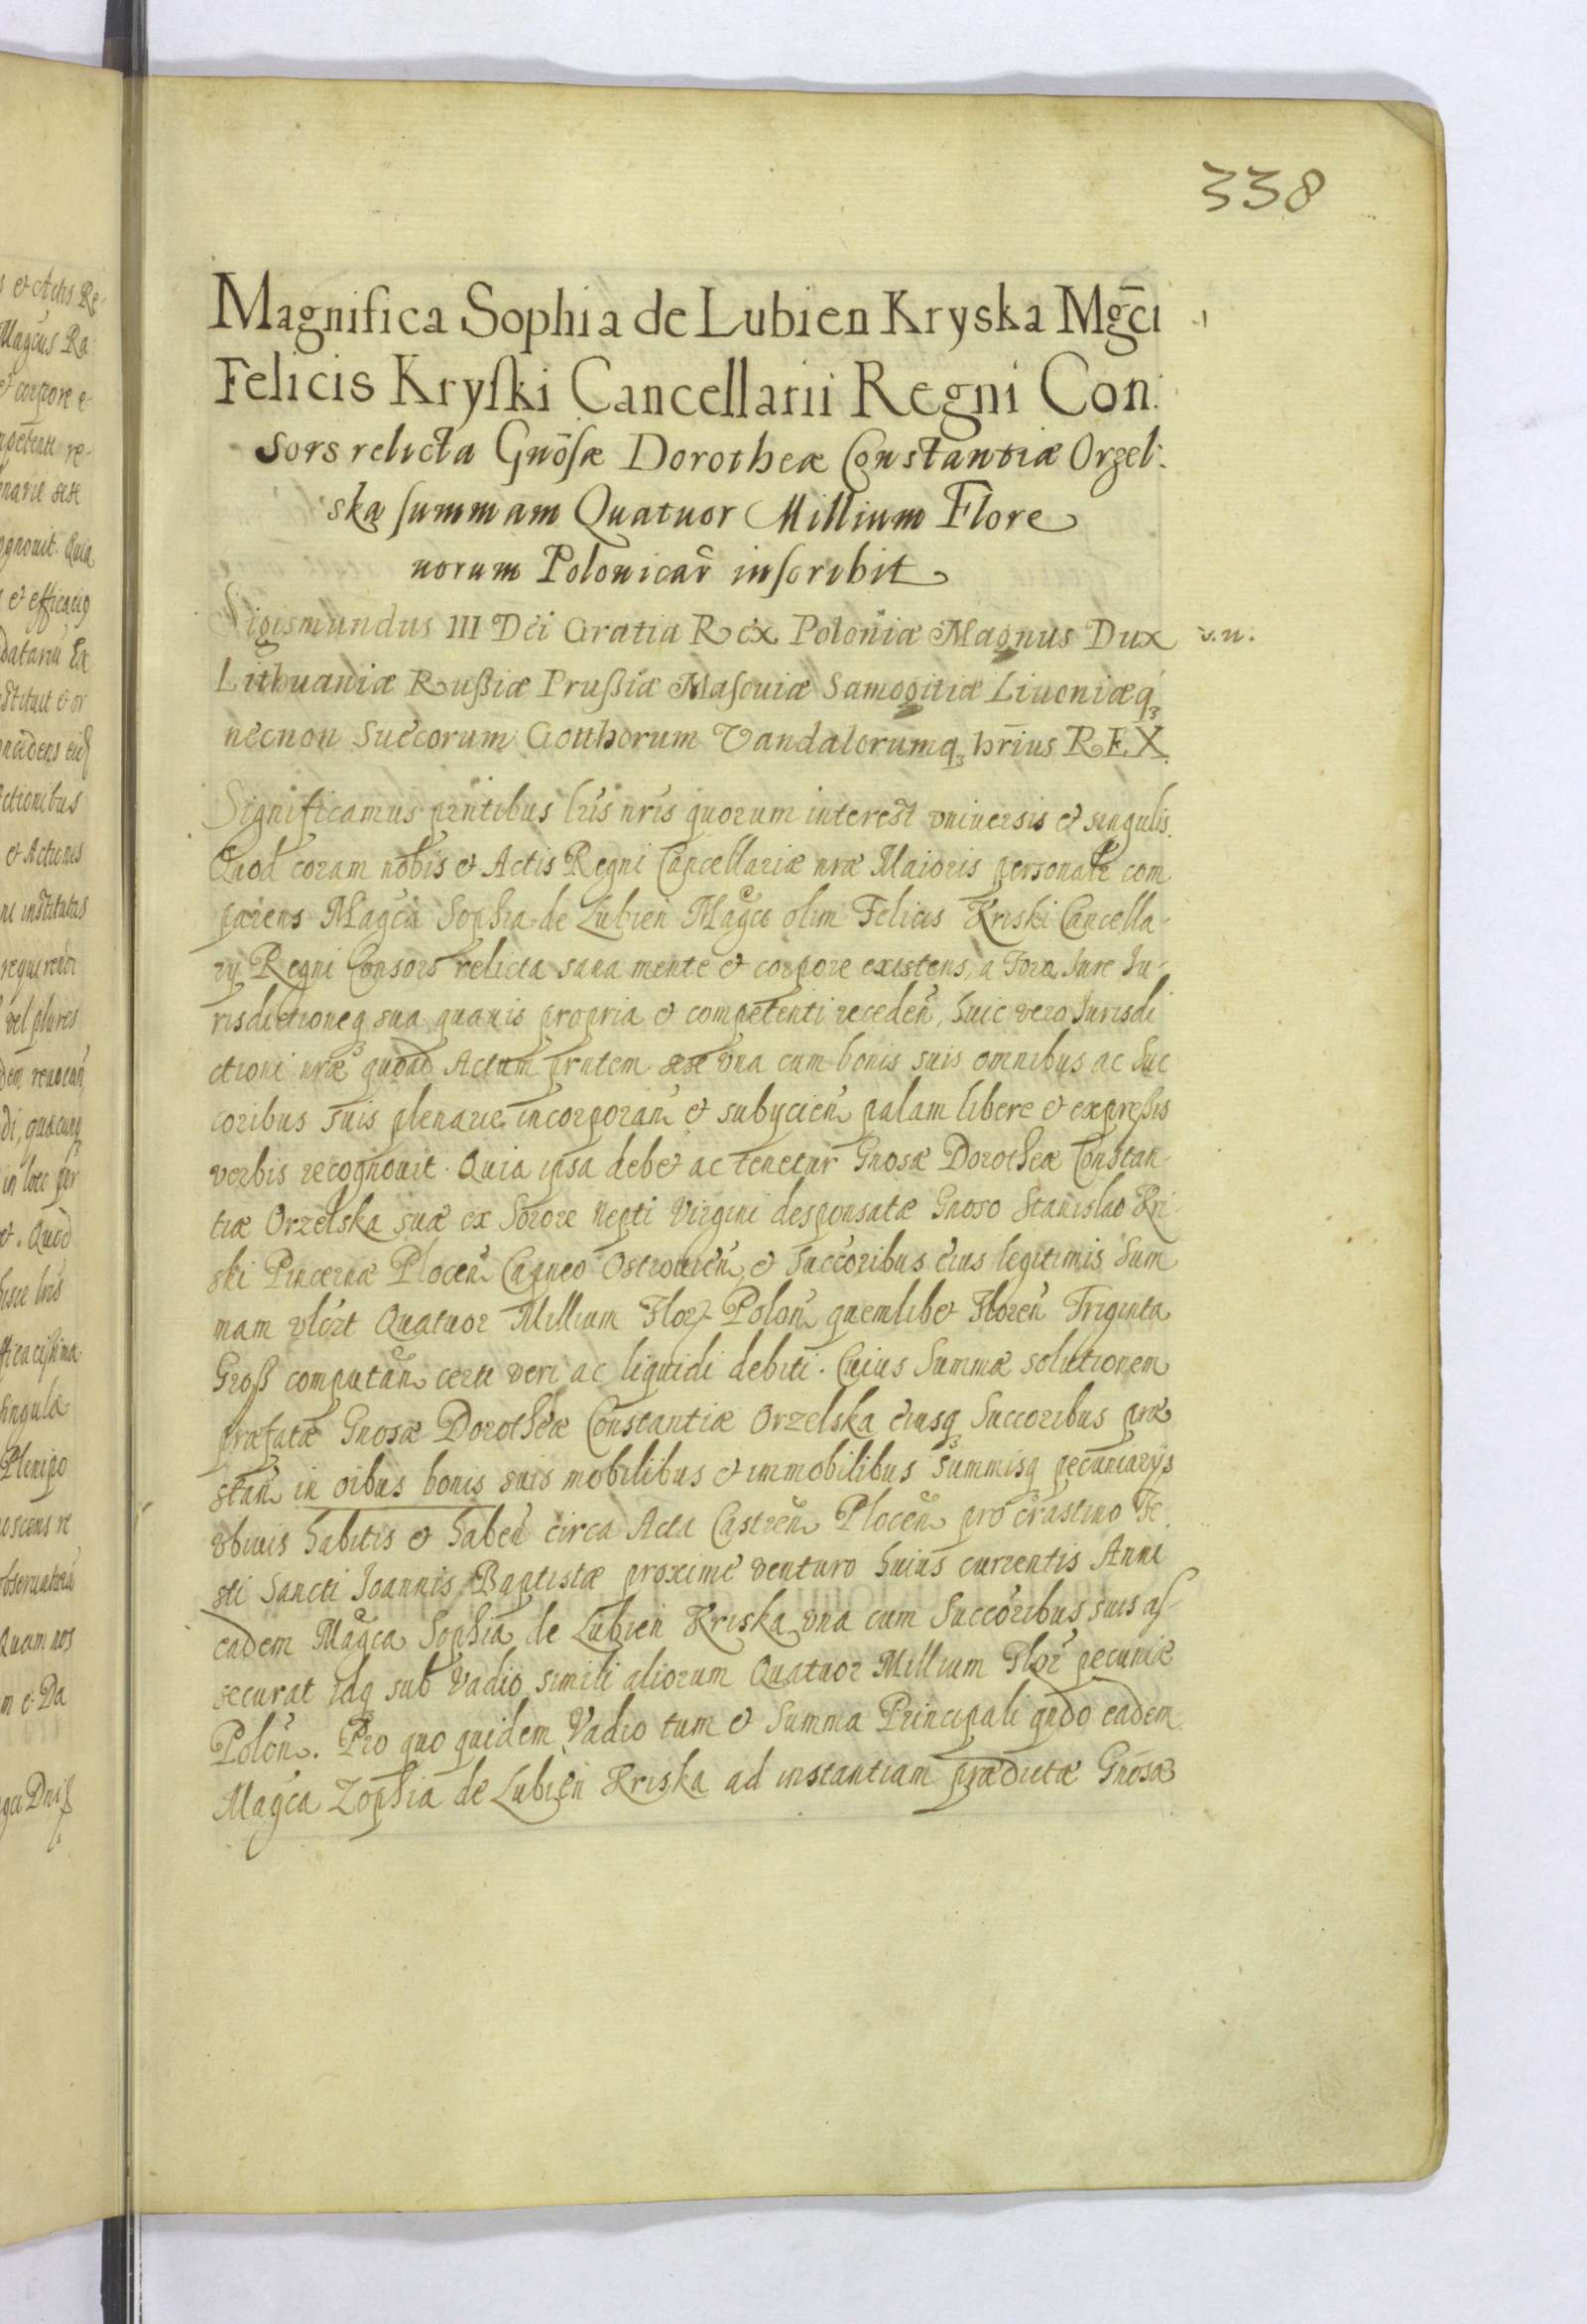 338
Magnifica Sophia de Lubien Kryska Mgc̄i
Felicis Kryſki Cancellarii Regni Con:
sors relicta Gnōſæ Dorotheæ Constantiæ Orzel:
ska ſummam Quatuor Millium Flore
norum Polonicar̃ inſcribit
Sigismundus III Dei Gratia Rex Poloniæ Magnus Dux
v. n.
Lithuaniæ Rußiæ Prußiæ Maſouiæ Samogitiæ Liuoniæq3
necnon Suecorum Gotthorum Vandalorumq3 hr̄ius REX.
Significamus pr̃ntibus lr̃is nr̃is quorum interest vniuersis et singulis.
Quod coram nobis et Actis Regni Cancellariæ nr̃æ Maioris personalr̃ com
parens Magc̃a Sophia de Lubien Magc̃i olim Felicis Kriski Cancella-
rij Regni Consors relicta sana mente et corpore existens, a Foro Iure Iu-
risdictioneq3 sua quauis propria et competenti receden̄, huic vero Iurisdi
ctioni nr̃æ quoad Actum pr̃ntem sese vna cum bonis suis omnibus ac Suc
coribus suis plenarie incorporan̄ et subycien̄ palam libere et expreßis
verbis recognouit. Quia ipsa debet ac tenetur Gnosæ Dorotheæ Constan-
tiæ Orzelska suæ ex Sorore Nepti Virgini desponsatæ Gnoso Stanislao Kri-
ski Pincernæ Plocen̄ Capneo Ostrouien̄, et Succoribus eius legitimis Sum
mam Quatuor Millium Flor Polon̄ quemlibet Floren̄ Triginta
Groß computan̄ certi veri ac liquidi debiti. Cuius Summæ solutionem
præfatæ Gnosæ Dorotheæ Constantiæ Orzelska eiusq3 Succoribus præ
stan̄ in oibus bonis suis mobilibus et immobilibus Summisq3 pecuniarijs
vbiuis habitis et haben̄ circa Acta Castren̄ Plocen̄ pro crastino Fe-
sti Sancti Ioannis Baptistæ proxime venturo huius currentis Anni
eadem Magc̃a Sophia de Lubien Kriska vna cum Succoribus suis aſ-
securat idq sub Vadio simili aliorum Quatuor Millium Flor̃ pecuniæ
Polon̄. Pro quo quidem Vadio tum et Summa Principali qñdo eadem
Magc̃a Zophia de Lubien Kriska ad instantiam prædictæ Gnōsæ